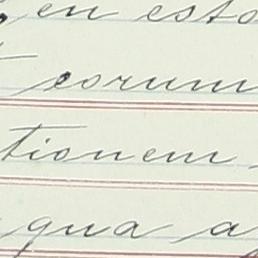 en esto
corum
tionem
qua a